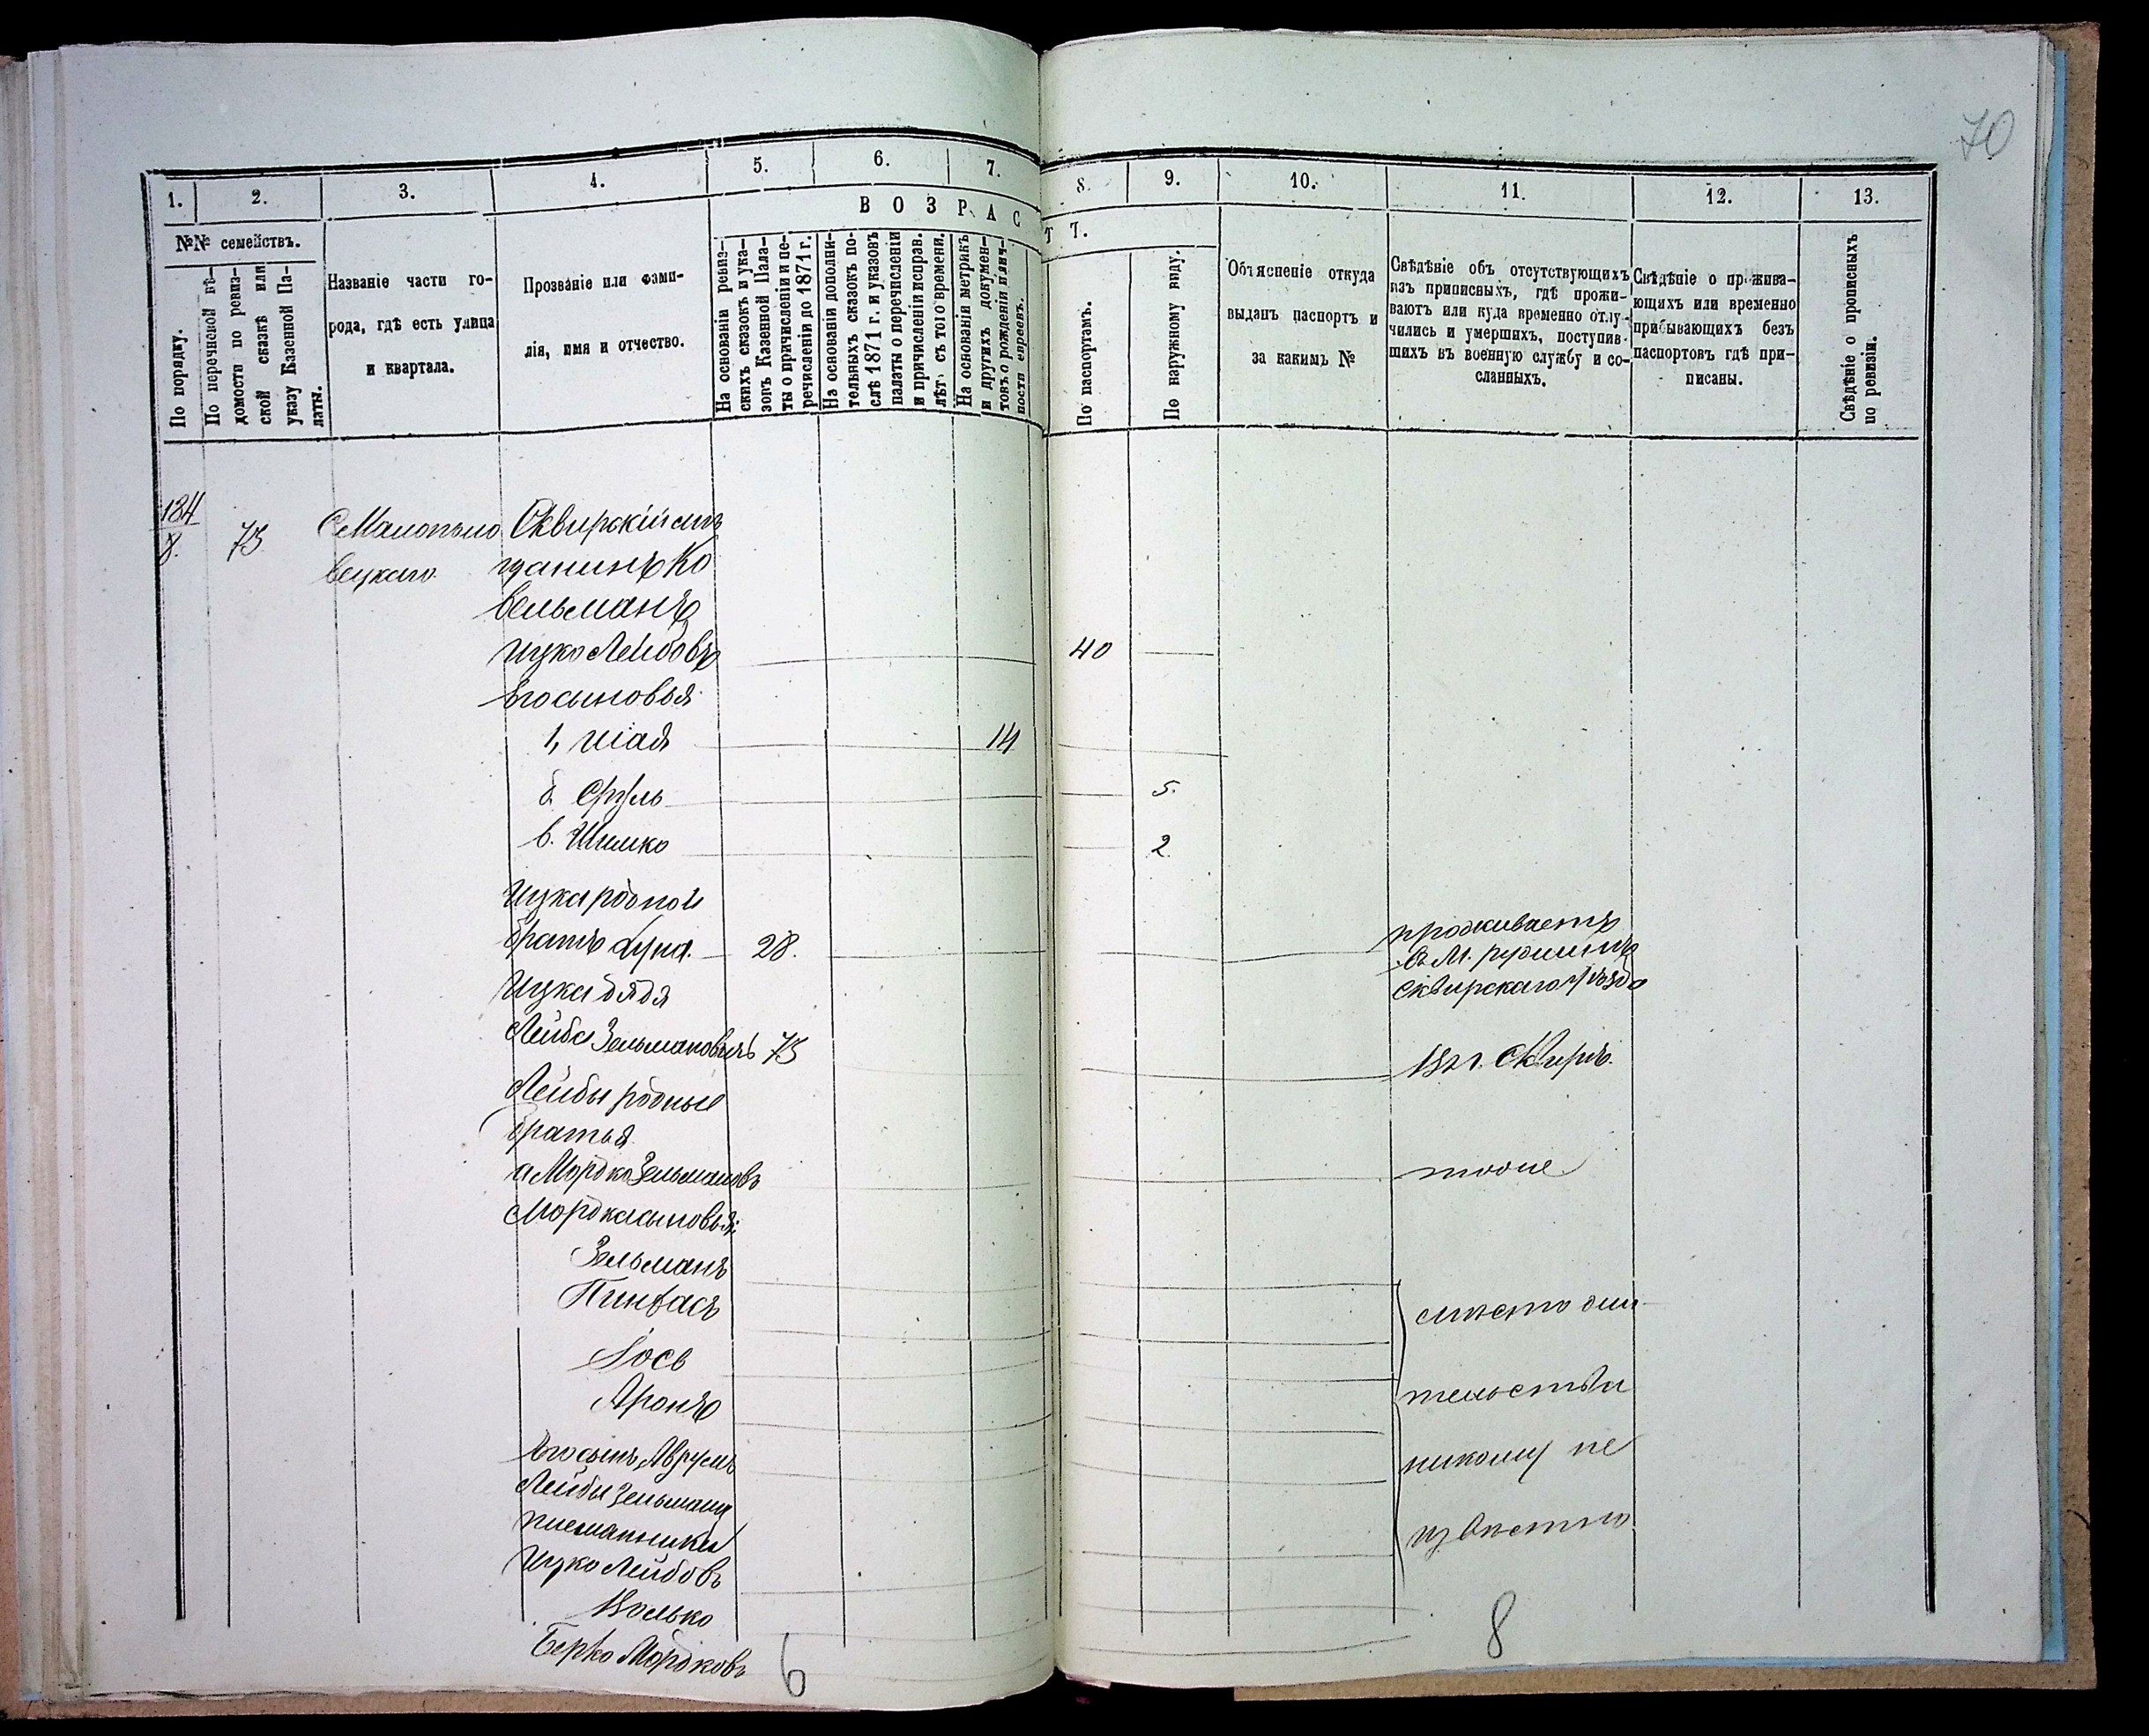 70
1.
2.
3.
4.
5.
6.
7.
8.
9.
10.
11.
12.
13.
№№ семействъ.
По порядку.
По перечневой вѣ-
домости по ревиз-
ской сказкѣ или
указу Казенной Па-
латы.
Названіе части го-
рода, гдѣ есть улица
и квартала.
Прозваніе или фами-
лія, имя и отчество.
ВОЗРАСТЪ.
На основаніи ревиз-
скихъ сказокъ и ука-
зовъ Казенной Пала-
ты о причисленіи и пе-
речисленіи до 1871 г.
На основаніи дополни-
тельныхъ сказокъ по-
слѣ 1871 г. и указовъ
палаты о перечисленіи
и причисленіи исправ.
лѣтъ съ того времени.
На основаніи метрикъ
и другихъ докумен-
товъ о рожденіи и лич-
ности евреевъ.
По паспортамъ.
По наружному виду.
Объясненіе откуда
выданъ паспортъ и
за какимъ №
Свѣдѣніе объ отсутствующихъ
изъ приписныхъ, гдѣ прожи-
ваютъ или куда временно отлу-
чились и умершихъ, поступив-
шихъ въ военную службу и со-
сланныхъ.
Свѣдѣніе о прожива-
ющихъ или временно
прибывающихъ безъ
паспортовъ гдѣ при-
писаны.
Свѣдѣніе о прописныхъ
по ревизіи.
184
8.
75
Сквирскій мѣ
вецкаго
щанинъ Ко
вельманъ
Ицко Лейбовъ
40
Его сыновья
1, Шая
14
б. Сруль
5.
в. Шимко
2.
Ицка родной
братъ Дуна.
28.
проживаетъ
въ М. Ружинѣ
Сквирскаго уѣзда
Ицка дядя
Лейба Зельмановичъ 75
въ г. Сквирѣ.
Лейбы родные
братья
а Мордко Зельмановъ
тоже
Мордка сыновья:
Зельманъ
Пинхасъ
Іось
Аронъ
мѣсто жи-
тельства
никому не
извѣстно.
Его сынъ Аврумъ
Лейбы Зельмана
племянники
Ицко Лейбовъ
Волько
Берко Мордковъ
6
8